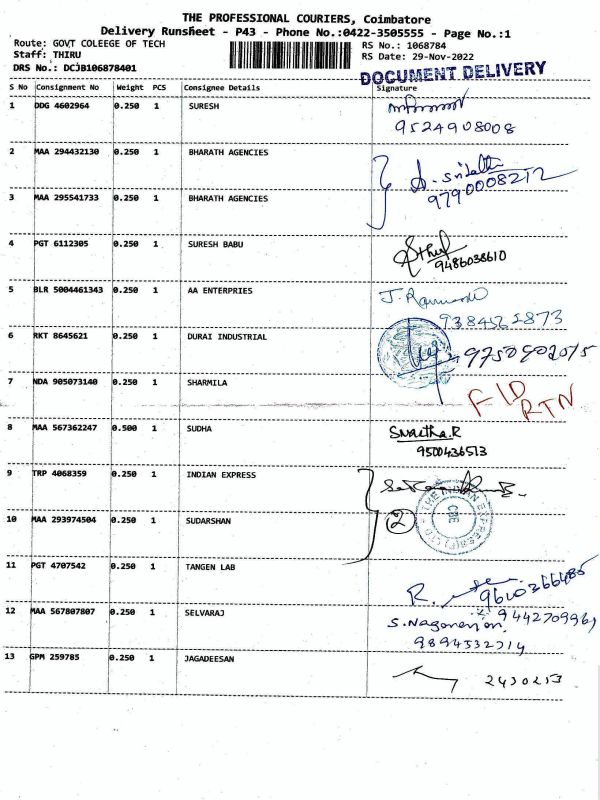 THE PROFESSIONAL COURIERS, Coimbatore
Delivery Runsheet - P43 - Phone No.:0422-3505555 - Page No.:1
Route: GOVT COLEEGE OF TECH
RS No.: 1068784
Staff: THIRU
RS Date: 29-Nov-2022
DRS No.: DCJB106878401
DOCUMENT DELIVERY
S No Consignment No Weight PCS Consignee Details Signature
1 DDG 4602964 0.250 1 SURESH
9524908008
2 MAA 294432130 0.250 1 BHARATH AGENCIES
9790008212
3 MAA 295541733 0.250 1 BHARATH AGENCIES
4 PGT 6112305 0.250 1 SURESH BABU
9486038610
5 BLR 5004461343 0.250 1 AA ENTERPRIES
6 RKT 8645621 0.250 1 DURAI INDUSTRIAL
7 NDA 905073140 0.250 1 SHARMILA
RTN
8 MAA 567362247 0.500 1 SUDHA
9500436513
9 TRP 4068359 0.250 1 INDIAN EXPRESS
THE INDIAN EXPRESS
CBE
10 MAA 293974504 0.250 1 SUDARSHAN 2
11 PGT 4707542 0.250 1 TANGEN LAB
12 MAA 567807807 0.250 1 SELVARAJ
13 GPM 259785 0.250 1 JAGADEESAN
2430253